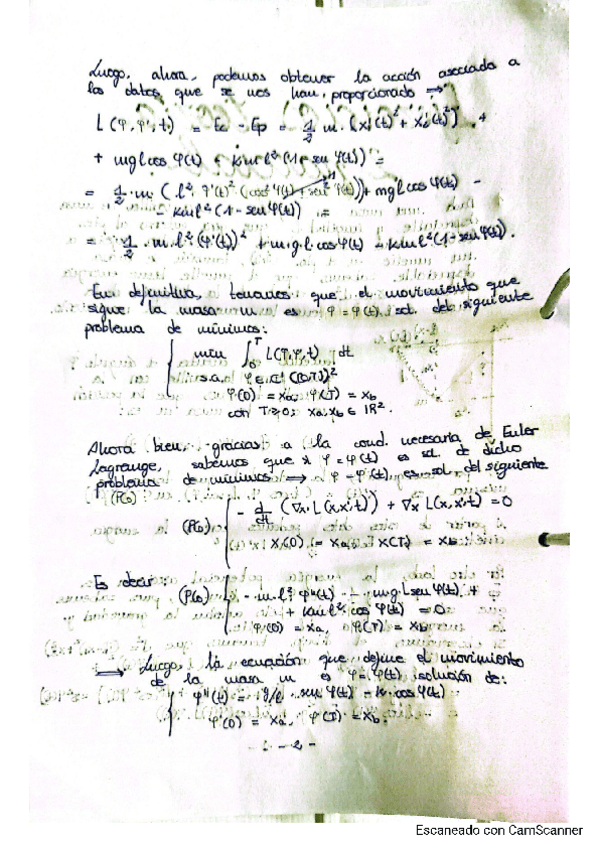 Luego, ahora, podemos obtener la acción asociada a
los datos que se nos han proporcionado →
L(φ, φ', t) = Ec - Ep = 1/2 m (x₁'(t)² + x₂'(t)²) +
+ mgl cos φ(t) - l² (1 - sen φ(t)) =
= 1/2 m (l² φ'(t)² (cos² φ(t) + sen² φ(t))) + mgl cos φ(t) -
- l² (1 - sen φ(t)) =
= 1/2 · m · l² (φ'(t))² + m · g · l · cos φ(t) - l² (1 - sen φ(t)).
En definitiva, tenemos que el movimiento que
sigue la masa m es φ = φ(t), sol. del siguiente
problema de mínimos:
min ∫₀ᵀ L(φ, φ, t) dt
s.a. φ ∈ C¹ ([0,T])²
φ(0) = xa, φ(T) = xb
con T ≥ 0; xa, xb ∈ ℝ².
Ahora bien, gracias a la cond. necesaria de Euler
Lagrange, sabemos que si φ = φ(t) es sol. de dicho
problema de mínimos ⟹ φ = φ(t), es sol. del siguiente
(P₀)
(P₀) { - d/dt (∇x' L(x, x', t)) + ∇x L(x, x', t) = 0
x(0) = xa, x(T) = xb
Es decir (P₀) { - m · l² · φ''(t) - m g l sen φ(t) +
+ l² cos φ(t) = 0
φ(0) = xa, φ(T) = xb
⟹ Luego, la ecuación que define el movimiento
de la masa m es φ = φ(t), solución de:
{ φ''(t) = - g/l · sen φ(t) - k · cos φ(t)
φ(0) = xa, φ(T) = xb.
- 2 -
Escaneado con CamScanner